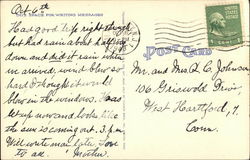 Oct 6th
THIS SPACE FOR WRITING MESSAGES
POST CARD
Had good trip right through
but had rain about half way
down and did it rain when
we arrived, wind blew so
hard thought it would
blow in the windows. Has
let up now and looks like
the sun is coming out. 3 p.m.
Will write mail later. Love
to all. Mother.
Mr. and Mrs. L. C. Johnson
106 Griswold Drive
West Hartford, 7
Conn.